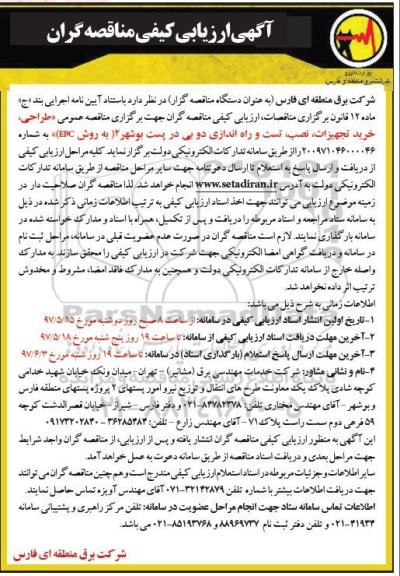 آگهی ارزیابی کیفی مناقصه گران
وزارت نیرو
شرکت برق منطقه ای فارس
شرکت برق منطقه ای فارس (به عنوان دستگاه مناقصه گزار) در نظر دارد باستناد آیین نامه اجرایی بند «ج»
ماده ۱۲ قانون برگزاری مناقصات، ارزیابی کیفی مناقصه گران جهت برگزاری مناقصه عمومی «طراحی،
خرید تجهیزات، نصب، تست و راه اندازی دو بی در پست بوشهر۲ (به روش EPC)» به شماره
۲۰۰۹۷۱۰۴۶۰۰۰۰۴۶ را از طریق سامانه تدارکات الکترونیکی دولت برگزار نماید. کلیه مراحل ارزیابی کیفی
از دریافت و ارسال پاسخ به استعلام تا ارسال دعوتنامه جهت سایر مراحل مناقصه از طریق سامانه تدارکات
الکترونیکی دولت به آدرس www.setadiran.ir انجام خواهد شد. لذا مناقصه گران صلاحیت دار در
زمینه موضوع ارزیابی می توانند جهت اخذ اسناد ارزیابی کیفی به ترتیب اطلاعات زمانی ذکر شده در ذیل
به سامانه ستاد مراجعه و اسناد مربوطه را دریافت و پس از تکمیل، همراه با اسناد و مدارک خواسته شده در
سامانه بارگذاری نمایند. لازم است مناقصه گران در صورت عدم عضویت قبلی در سامانه، مراحل ثبت نام
در سامانه و دریافت گواهی امضا الکترونیکی جهت شرکت در ارزیابی کیفی را محقق سازند. به مدارک
واصله خارج از سامانه تدارکات الکترونیکی دولت و همچنین به مدارک فاقد امضا، مشروط و مخدوش
ترتیب اثر داده نخواهد شد.
اطلاعات زمانی به شرح ذیل می باشد:
۱-تاریخ اولین انتشار اسناد ارزیابی کیفی در سامانه: از ساعت ۸ صبح روز دوشنبه مورخ ۹۷/۵/۱۵
۲-آخرین مهلت دریافت اسناد ارزیابی کیفی از سامانه: تا ساعت ۱۹ روز پنج شنبه مورخ ۹۷/۵/۱۸
۳-آخرین مهلت ارسال پاسخ استعلام (بارگذاری اسناد) در سامانه: تا ساعت ۱۹ روز شنبه مورخ ۹۷/۶/۳
۴- نام و نشانی مشاور: شرکت خدمات مهندسی برق (مشانیر) - تهران، میدان ونک خیابان شهید خدامی
کوچه شادی پلاک یک معاونت طرح های انتقال و توزیع نیرو امور پستهای ۲ پروژه پستهای منطقه فارس
و بوشهر - آقای مهندس مختاری تلفن: ۸۴۷۸۲۳۷۸-۰۲۱ و دفتر فارس - شیراز - خیابان قصرالدشت کوچه
۵۹ فرعی دوم سمت راست پلاک ۷۱ - آقای مهندس زارع - تلفن: ۳۶۲۸۵۴۸۴ - ۰۹۱۷۳۲۰۲۸۴۰
این آگهی به منظور ارزیابی کیفی مناقصه گران انتشار یافته و پس از ارزیابی، از مناقصه گران واجد شرایط
جهت مراحل بعدی و دریافت اسناد مناقصه از طریق سامانه دعوت به عمل خواهد آمد.
سایر اطلاعات و جزئیات مربوطه در اسناد استعلام ارزیابی کیفی مندرج است و هم چنین مناقصه گران می توانند
جهت دریافت اطلاعات بیشتر با شماره تلفن ۳۲۱۴۲۸۷۹-۰۷۱ آقای مهندس آویژه تماس حاصل نمایند.
اطلاعات تماس سامانه ستاد جهت انجام مراحل عضویت در سامانه: تلفن مرکز راهبری و پشتیبانی سامانه
۴۱۹۳۴-۰۲۱ و تلفن دفتر ثبت نام ۸۸۹۶۹۷۳۷ و ۸۵۱۹۳۷۶۸-۰۲۱ می باشد.
شرکت برق منطقه ای فارس